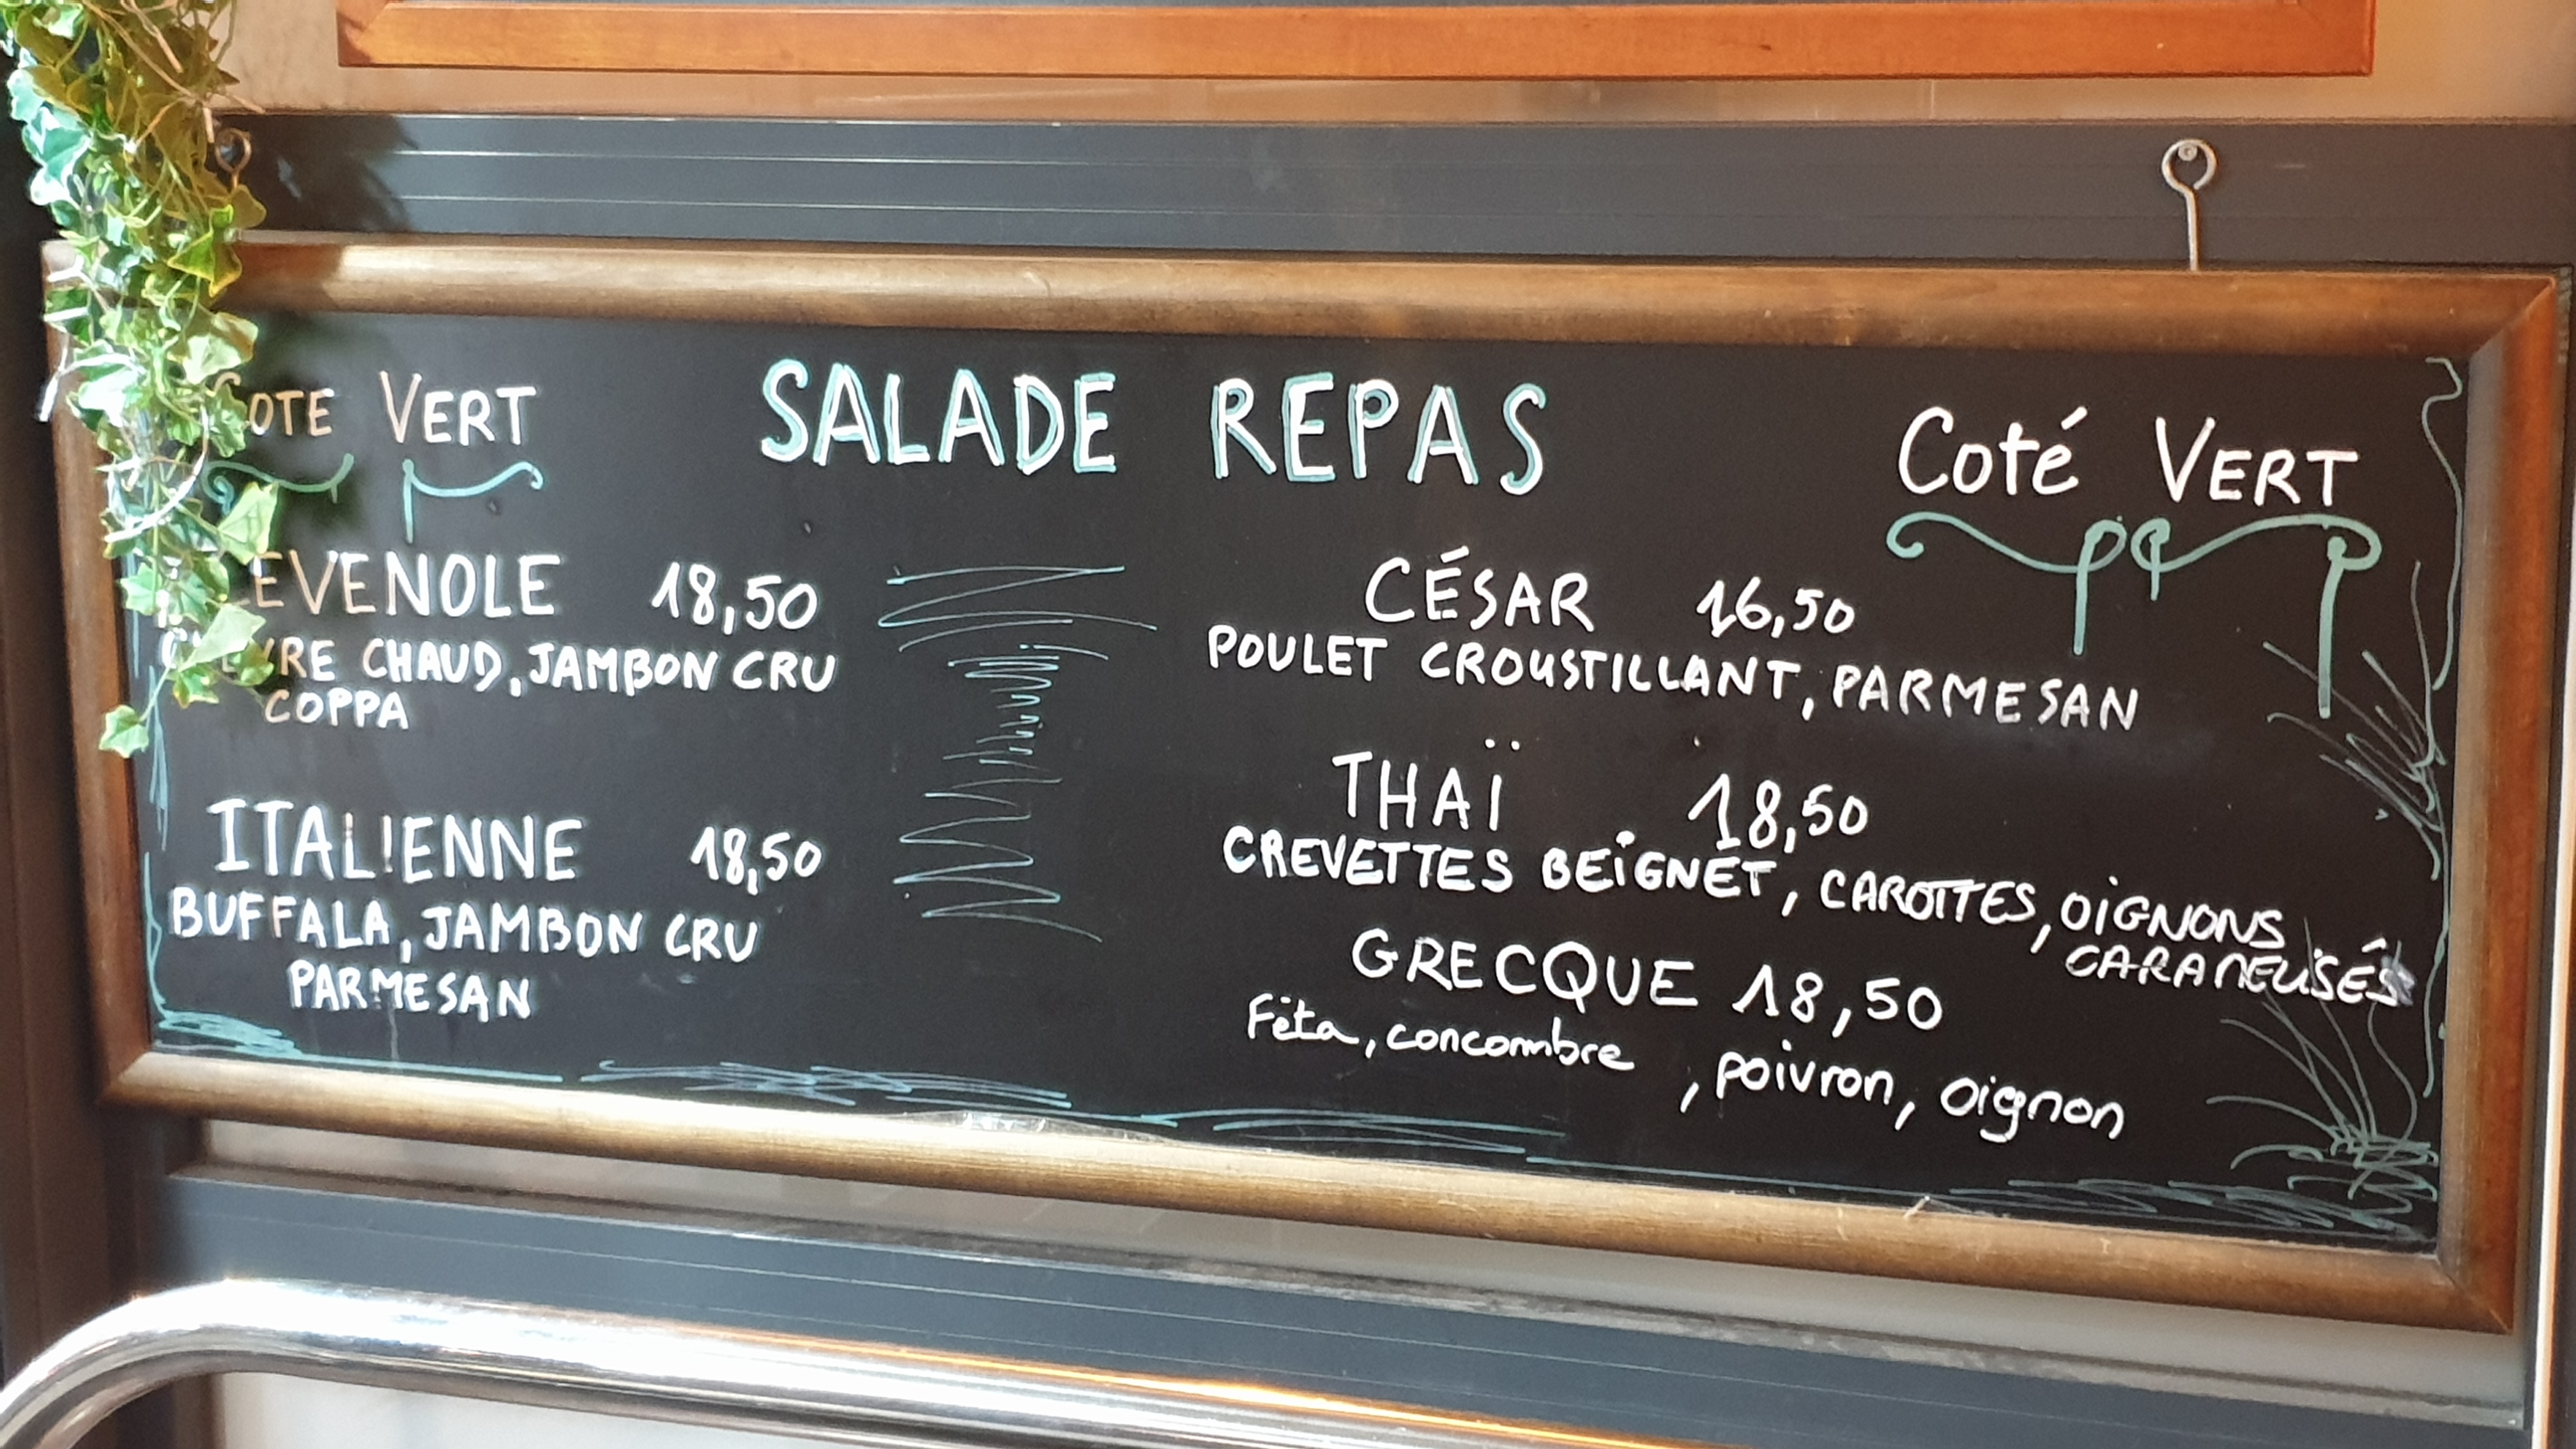 COTE VERT
SALADE REPAS
Coté VERT
EVENOLE 18,50
CHEVRE CHAUD, JAMBON CRU
COPPA
ITALIENNE 18,50
BUFFALA, JAMBON CRU
PARMESAN
CÉSAR 16,50
POULET CROUSTILLANT, PARMESAN
THAÏ 18,50
CREVETTES BEIGNET, CAROTTES, OIGNONS
CARAMELISÉS
GRECQUE 18,50
Fêta, concombre , poivron, oignon